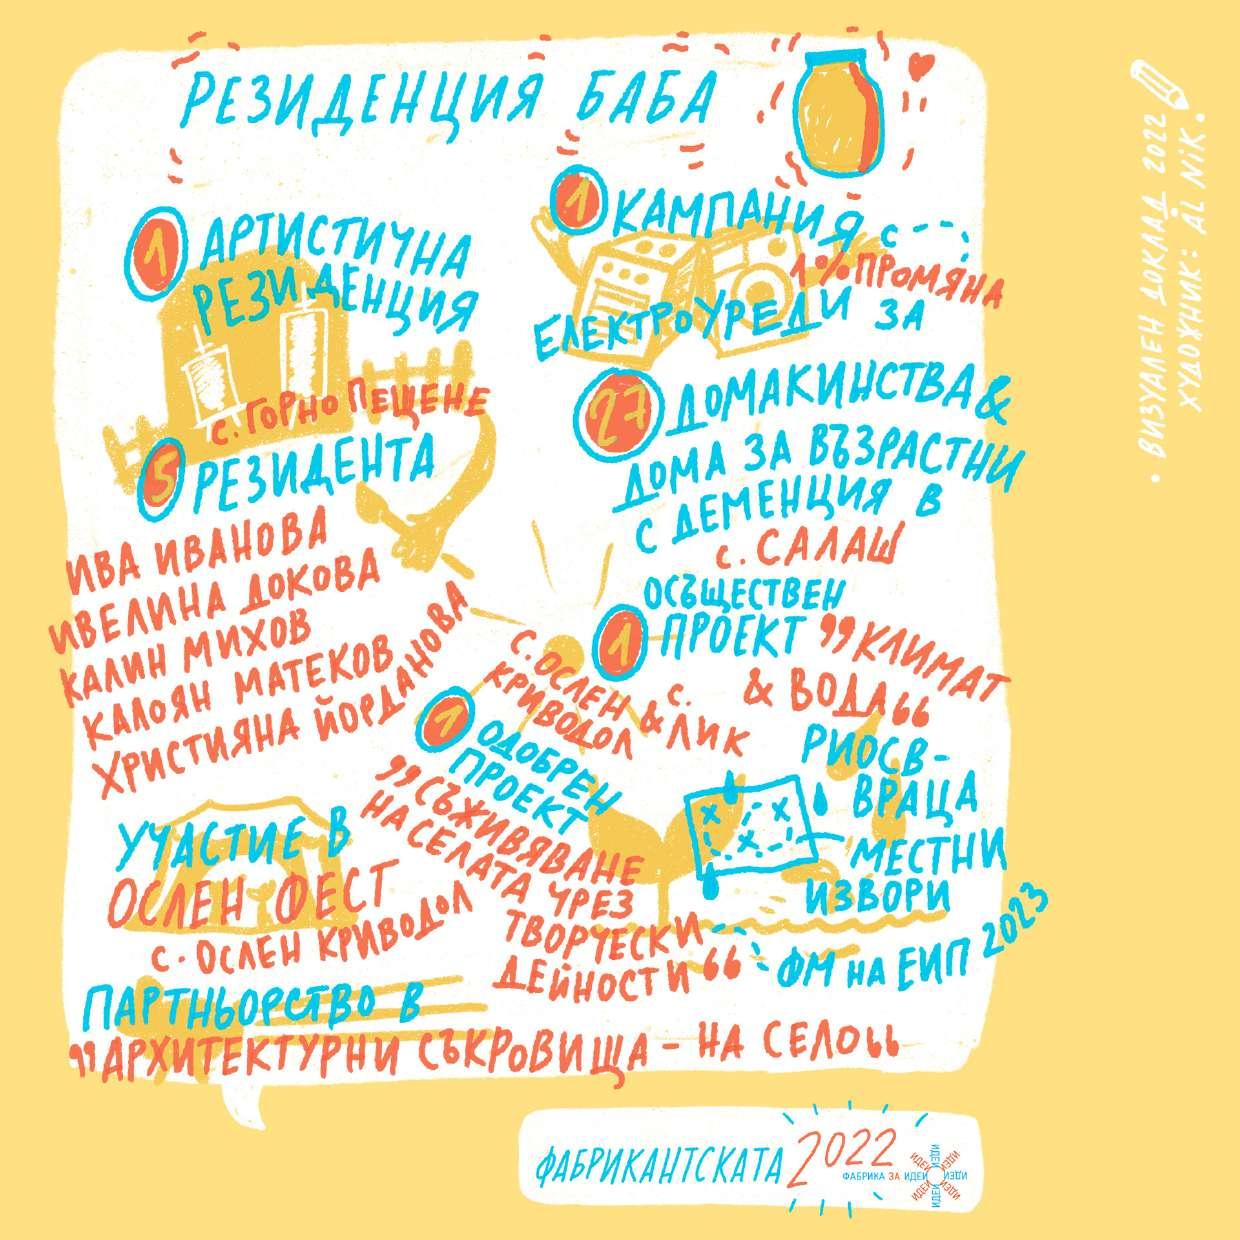 РЕЗИДЕНЦИЯ БАБА
1 АРТИСТИЧНА
РЕЗИДЕНЦИЯ
с. ГОРНО ПЕЩЕНЕ
5 РЕЗИДЕНТА
ИВА ИВАНОВА
ИВЕЛИНА ДОКОВА
КАЛИН МИХОВ
КАЛОЯН МАТЕКОВ
ХРИСТИЯНА ЙОРДАНОВА
УЧАСТИЕ В
ОСЛЕН ФЕСТ
с. ОСЛЕН КРИВОДОЛ
1 КАМПАНИЯ с
1% ПРОМЯНА
ЕЛЕКТРОУРЕДИ ЗА
27 ДОМАКИНСТВА &
ДОМА ЗА ВЪЗРАСТНИ
С ДЕМЕНЦИЯ В
с. САЛАШ
ОСЪЩЕСТВЕН
1 ПРОЕКТ „КЛИМАТ
& ВОДА“
с. ОСЛЕН
КРИВОДОЛ &
с. ЛИК
РИОСВ-
ВРАЦА
МЕСТНИ
ИЗВОРИ
1 ОДОБРЕН
ПРОЕКТ
„СЪЖИВЯВАНЕ
НА СЕЛАТА ЧРЕЗ
ТВОРЧЕСКИ
ДЕЙНОСТИ“
ФМ НА ЕИП 2023
ПАРТНЬОРСТВО В
„АРХИТЕКТУРНИ СЪКРОВИЩА - НА СЕЛО“
ФАБРИКАНТСКАТА 2022
ФАБРИКА ЗА ИДЕИ
ИДЕИ
ИДЕИ
ИДЕИ
ИДЕИ
ИДЕИ
ИДЕИ
ИДЕИ
• ВИЗУАЛЕН ДОКЛАД 2022
ХУДОЖНИК: ÅL NiK •